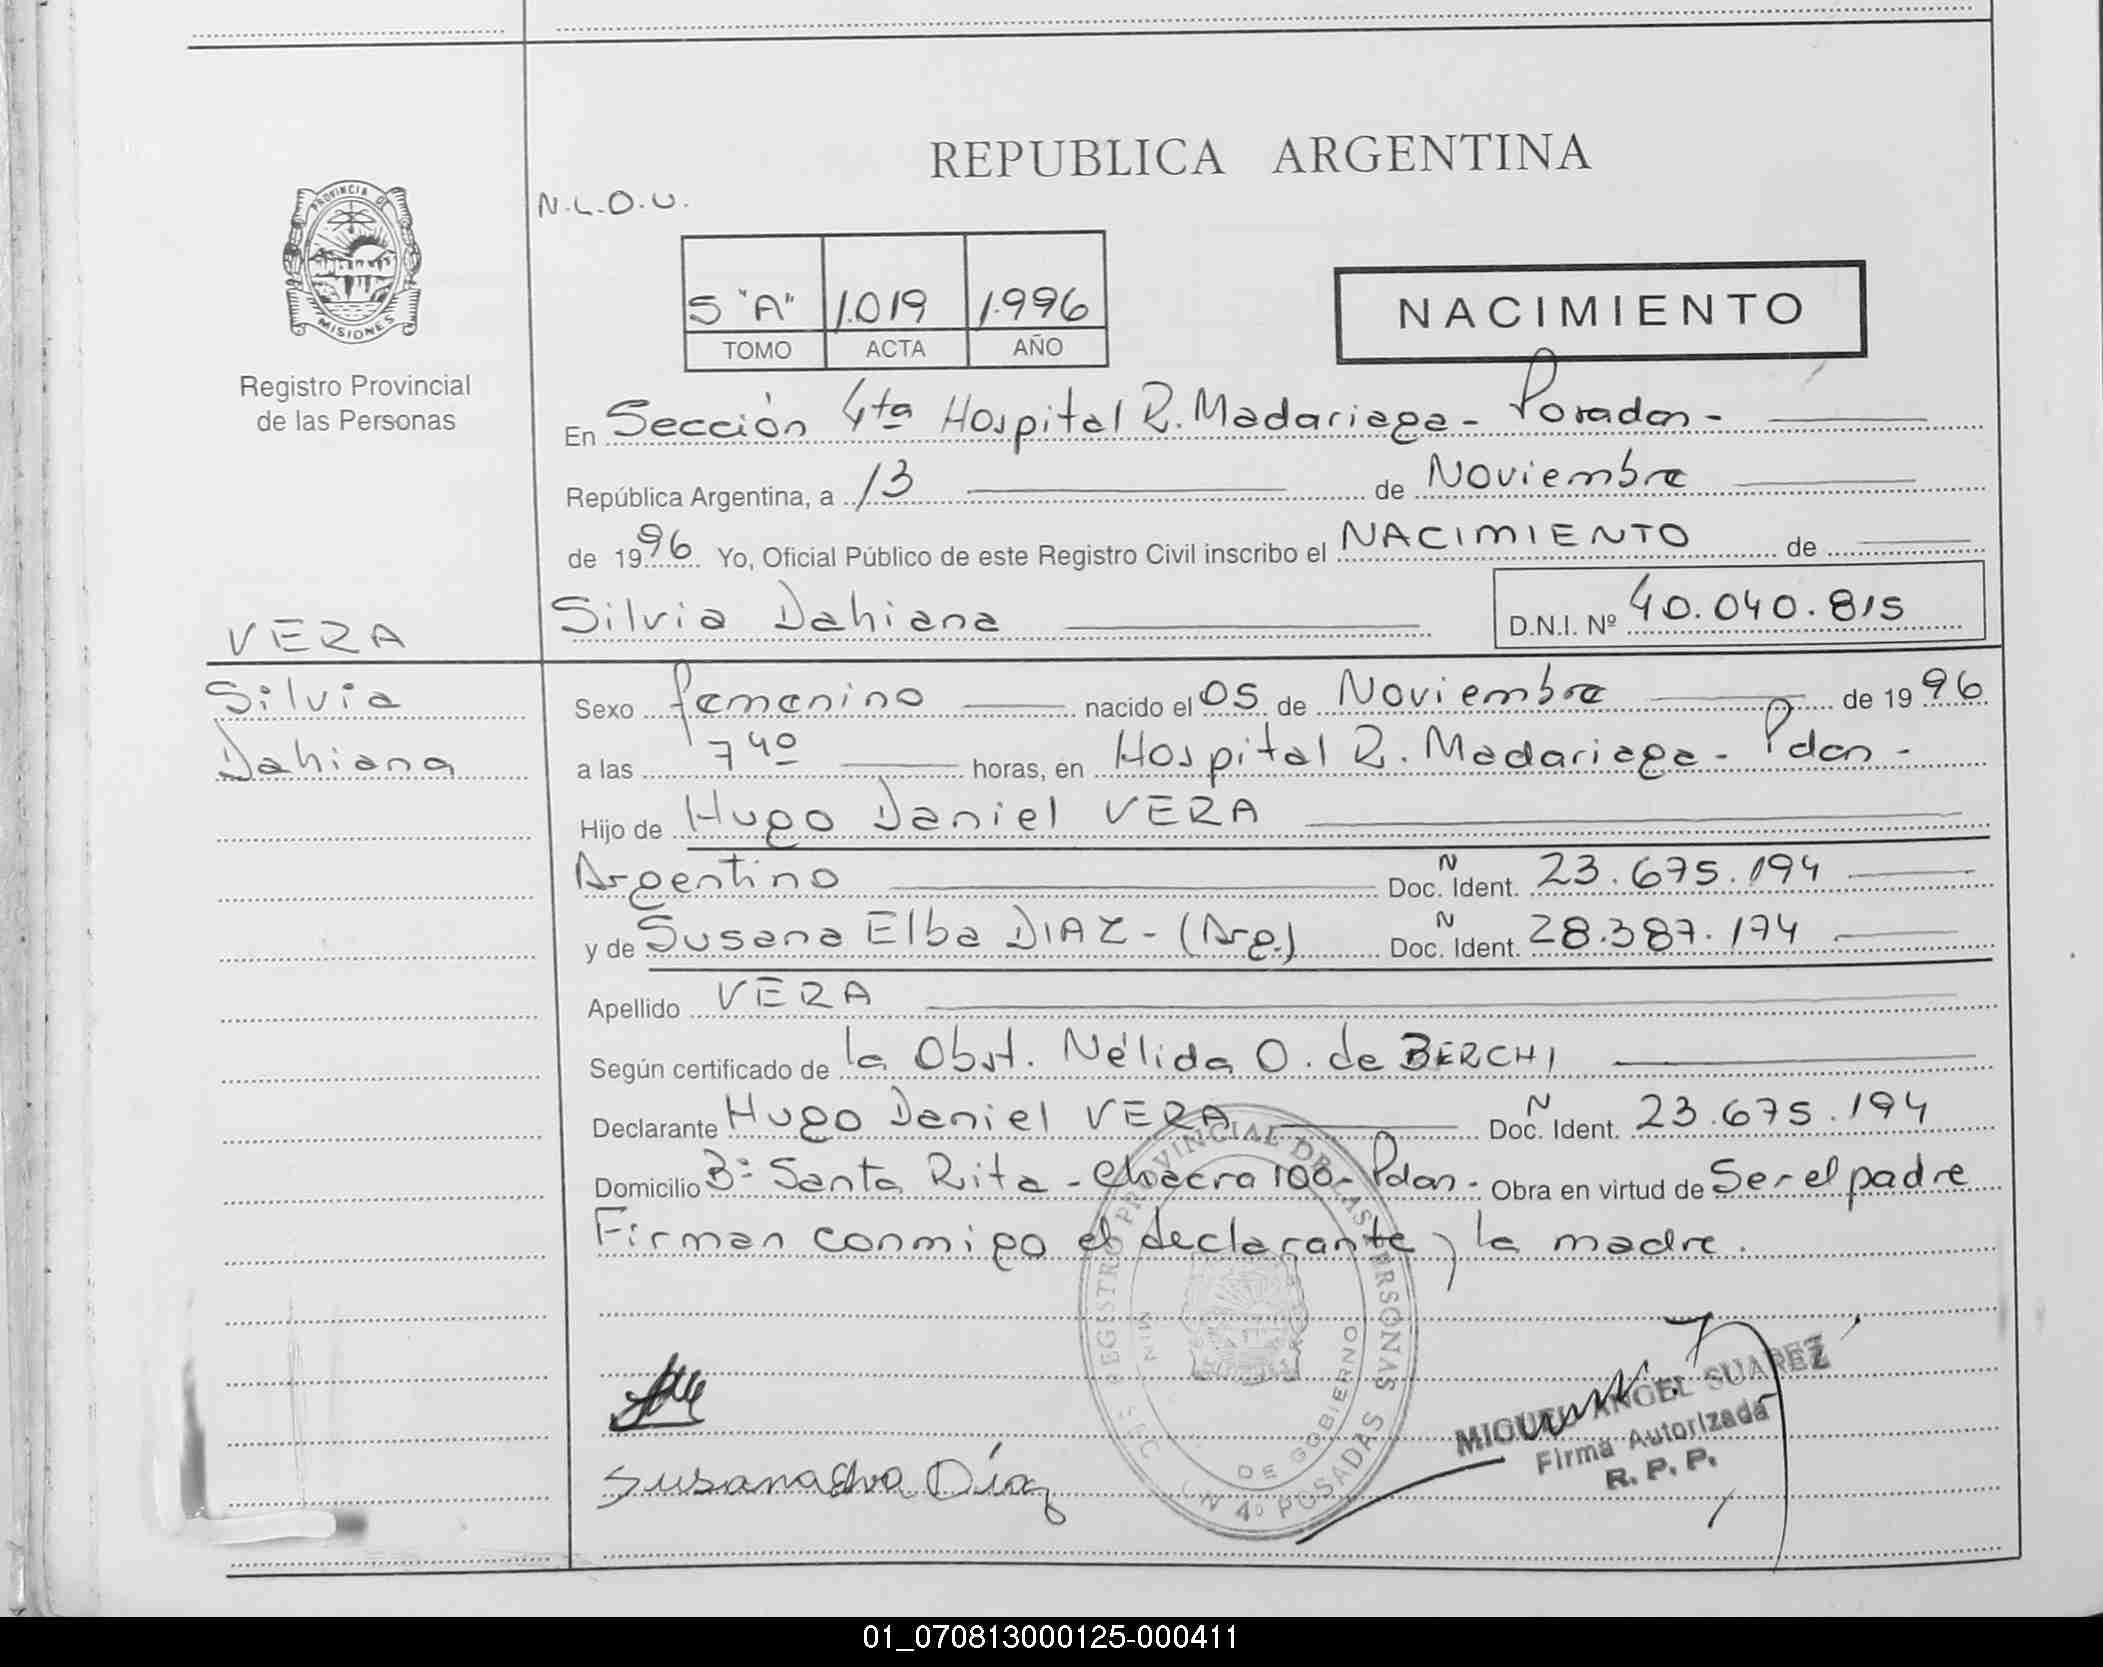 REPUBLICA ARGENTINA
N.L.O.U.
PROVINCIA DE MISIONES
Registro Provincial
de las Personas
5 "A" 1.019 1.996
TOMO ACTA AÑO
NACIMIENTO
En Sección 4ta Hospital R. Madariaga - Posadas -
República Argentina, a 13 de Noviembre
de 1996 Yo, Oficial Público de este Registro Civil inscribo el NACIMIENTO de
Silvia Dahiana D.N.I. Nº 40.040.815
VERA
Silvia
Dahiana
Sexo femenino nacido el 05 de Noviembre de 1996
a las 7 40 horas, en Hospital R. Madariaga - Pdas -
Hijo de Hugo Daniel VERA
Argentino Doc. N Ident. 23.675.194
y de Susana Elba DIAZ - (Arg.) Doc. N Ident. 28.387.174
Apellido VERA
Según certificado de la Obst. Nélida O. de BERCHI
Declarante Hugo Daniel VERA Doc. N Ident. 23.675.194
Domicilio Bº Santa Rita - Chacra 100 - Pdas - Obra en virtud de Ser el padre
Firman conmigo el declarante y la madre.
REGISTRO PROVINCIAL DE LAS PERSONAS
MIN DE GOBIERNO
SEC CN 4º POSADAS
MIGUEL ANGEL SUAREZ
Firma Autorizada
R. P. P.
Susana Elva Díaz
01_070813000125-000411